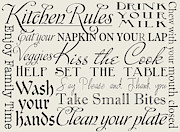 Kitchen Rules
DRINK YOUR MILK
Put your NAPKIN ON YOUR LAP
Eat your Veggies
Kiss the Cook
HELP SET THE TABLE
Wash your hands
Say Please and Thank you
Take Small Bites
Clean your plate
Enjoy Family Time
Chew with your mouth closed